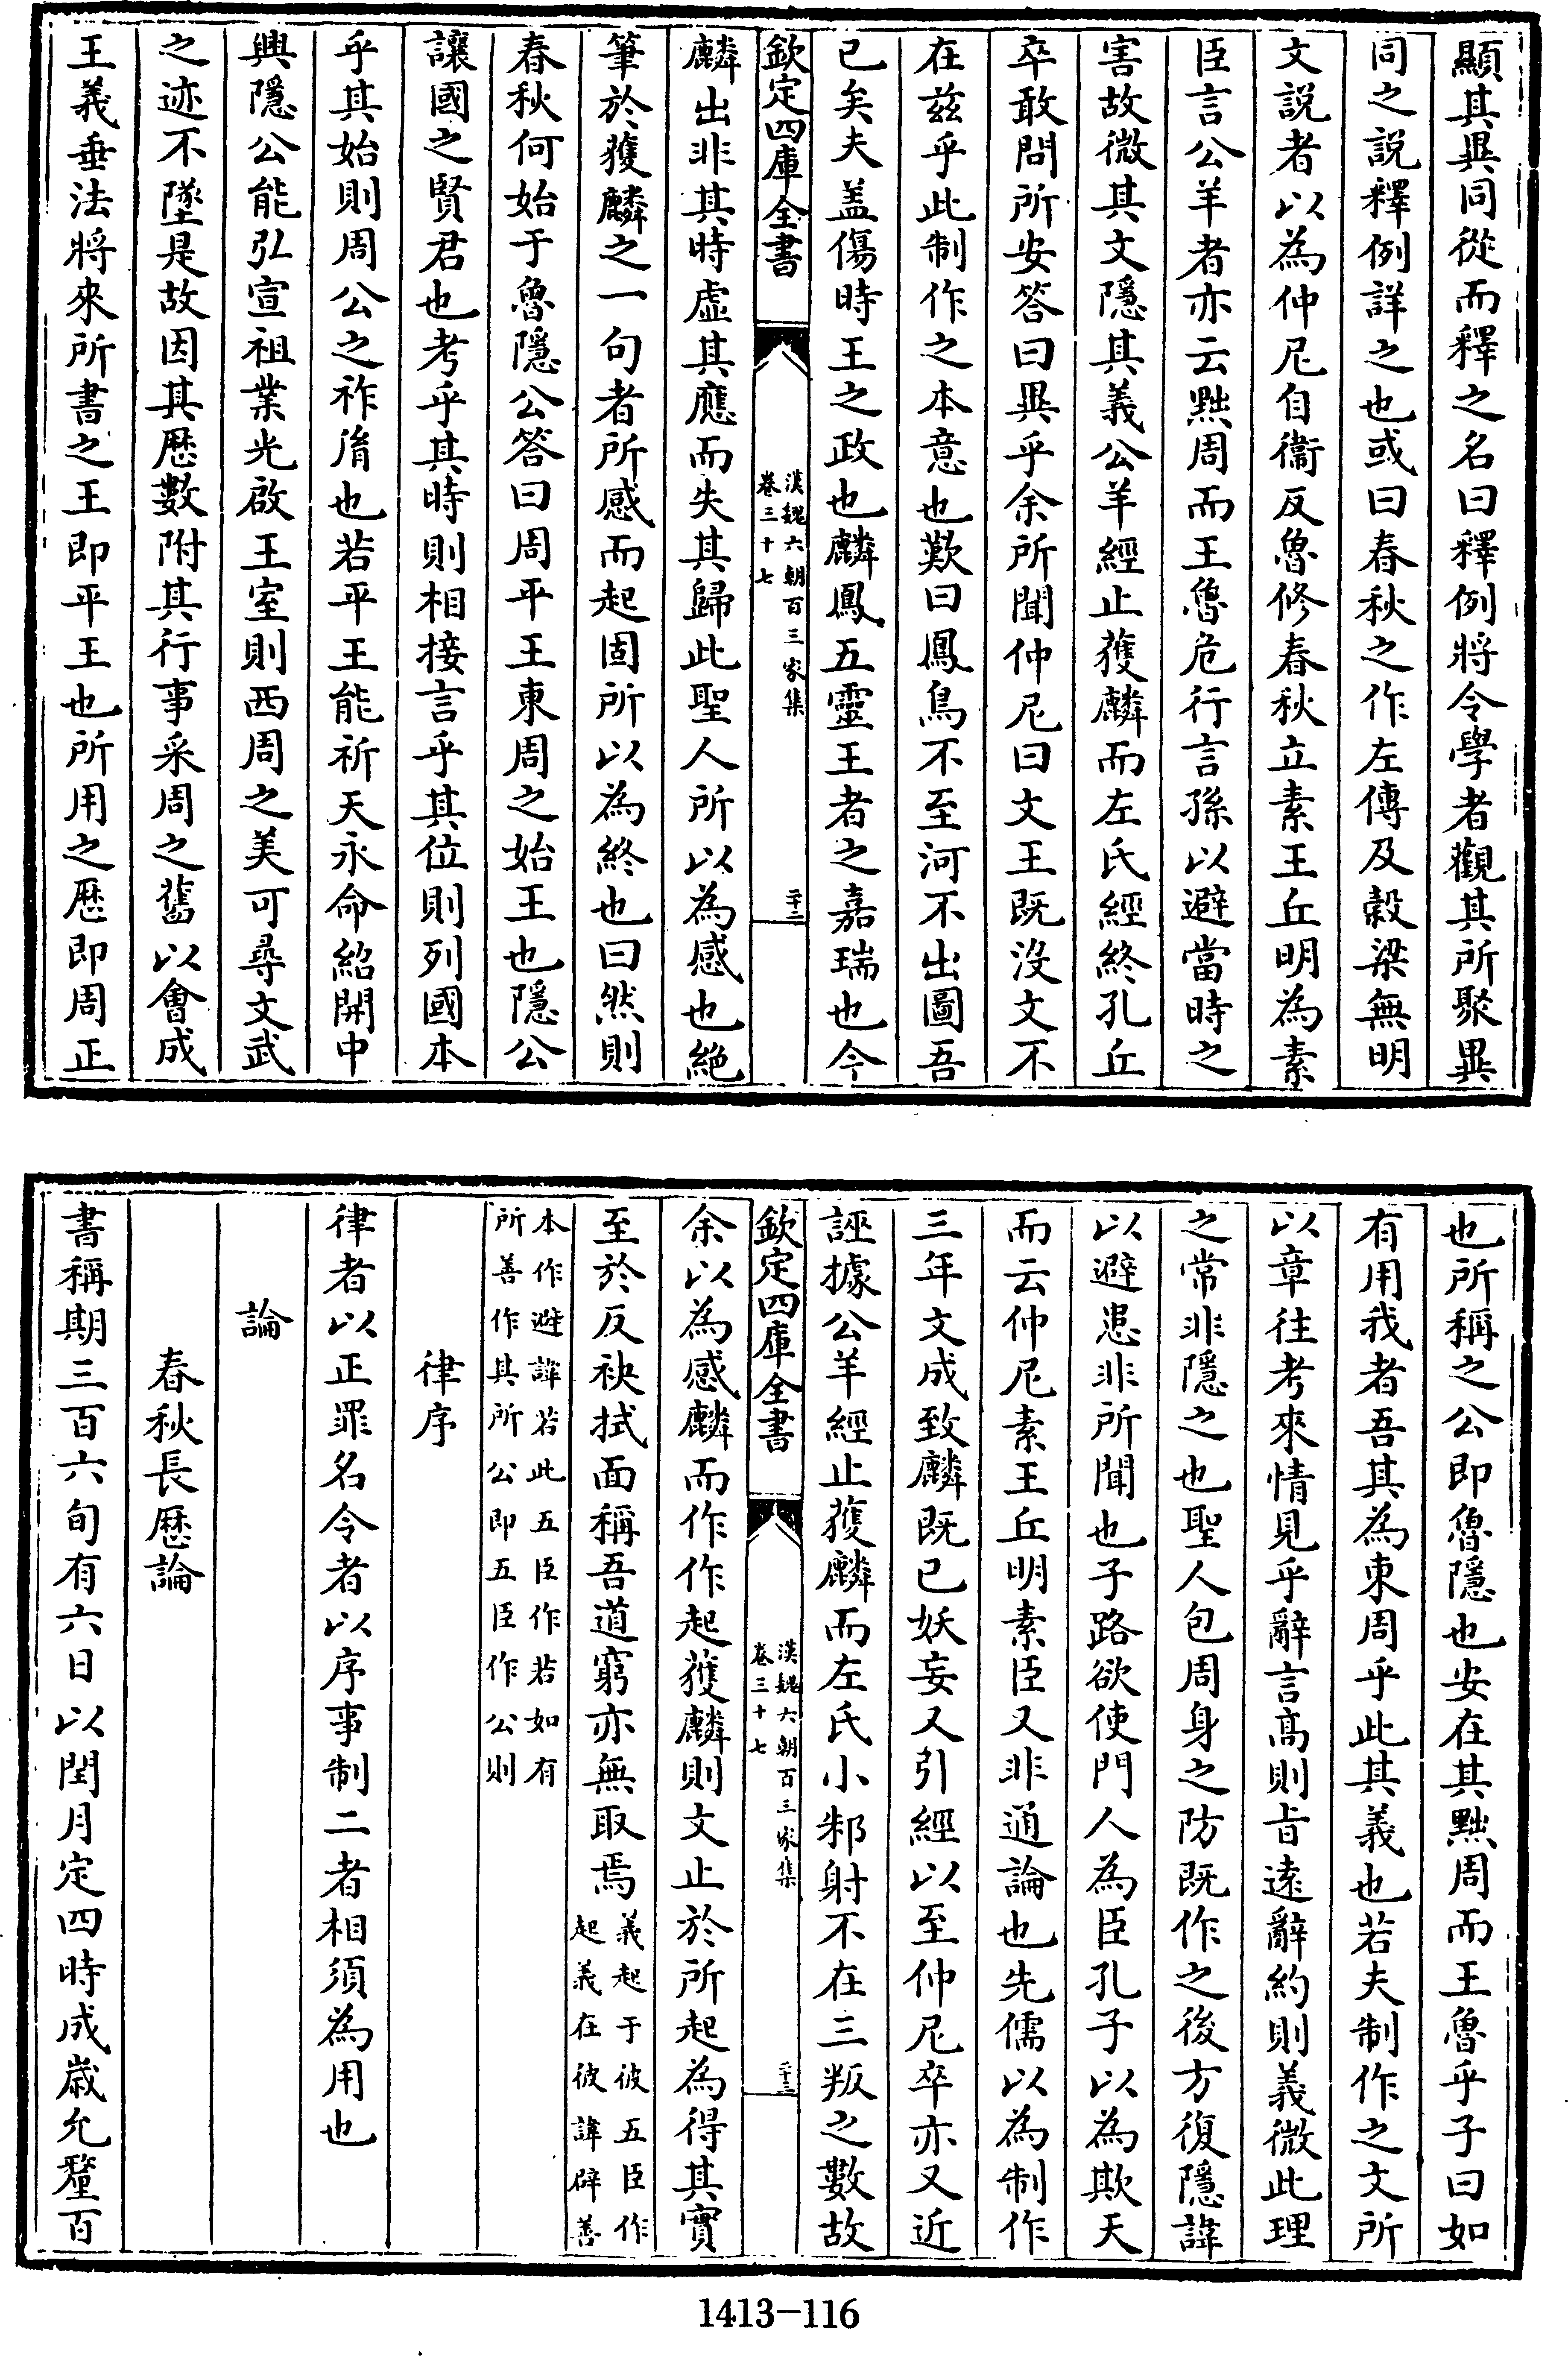 顯其異同從而釋之名曰釋例將令學者觀其所聚異
同之説釋例詳之也或曰春秋之作左傳及榖梁無明
文説者以為仲尼自衞反魯修春秋立素王丘明為素
臣言公羊者亦云黜周而王魯危行言孫以避當時之
害故微其文隱其義公羊經止獲麟而左氏經終孔丘
卒敢問所安答曰異乎余所聞仲尼曰文王既沒文不
在兹乎此制作之本意也歎曰鳳鳥不至河不出圖吾
已矣夫盖傷時王之政也麟鳳五靈王者之嘉瑞也今
欽定四庫全書
漢魏六朝百三家集
卷三十七
二十二
麟出非其時虛其應而失其歸此聖人所以為感也絶
筆於獲麟之一句者所感而起固所以為終也曰然則
春秋何始于魯隱公答曰周平王東周之始王也隱公
讓國之賢君也考乎其時則相接言乎其位則列國本
乎其始則周公之祚胤也若平王能祈天永命紹開中
興隱公能弘宣祖業光啟王室則西周之美可尋文武
之迹不墜是故因其厯數附其行事采周之舊以會成
王義垂法將來所書之王即平王也所用之厯即周正
也所稱之公即魯隱也安在其黜周而王魯乎子曰如
有用我者吾其為東周乎此其義也若夫制作之文所
以章往考來情見乎辭言髙則旨逺辭約則義微此理
之常非隱之也聖人包周身之防既作之後方復隱諱
以避患非所聞也子路欲使門人為臣孔子以為欺天
而云仲尼素王丘明素臣又非通論也先儒以為制作
三年文成致麟既已妖妄又引經以至仲尼卒亦又近
誣據公羊經止獲麟而左氏小邾射不在三叛之數故
欽定四庫全書
漢魏六朝百三家集
卷三十七
二十三
余以為感麟而作作起獲麟則文止於所起為得其實
至於反袂拭面稱吾道窮亦無取焉義起于彼五臣作
起義在彼諱辟善
本作避諱若此五臣作若如有
所善作其所公即五臣作公則
律序
律者以正罪名令者以序事制二者相須為用也
論
春秋長厯論
書稱期三百六旬有六日以閏月定四時成歲允釐百
1413-116